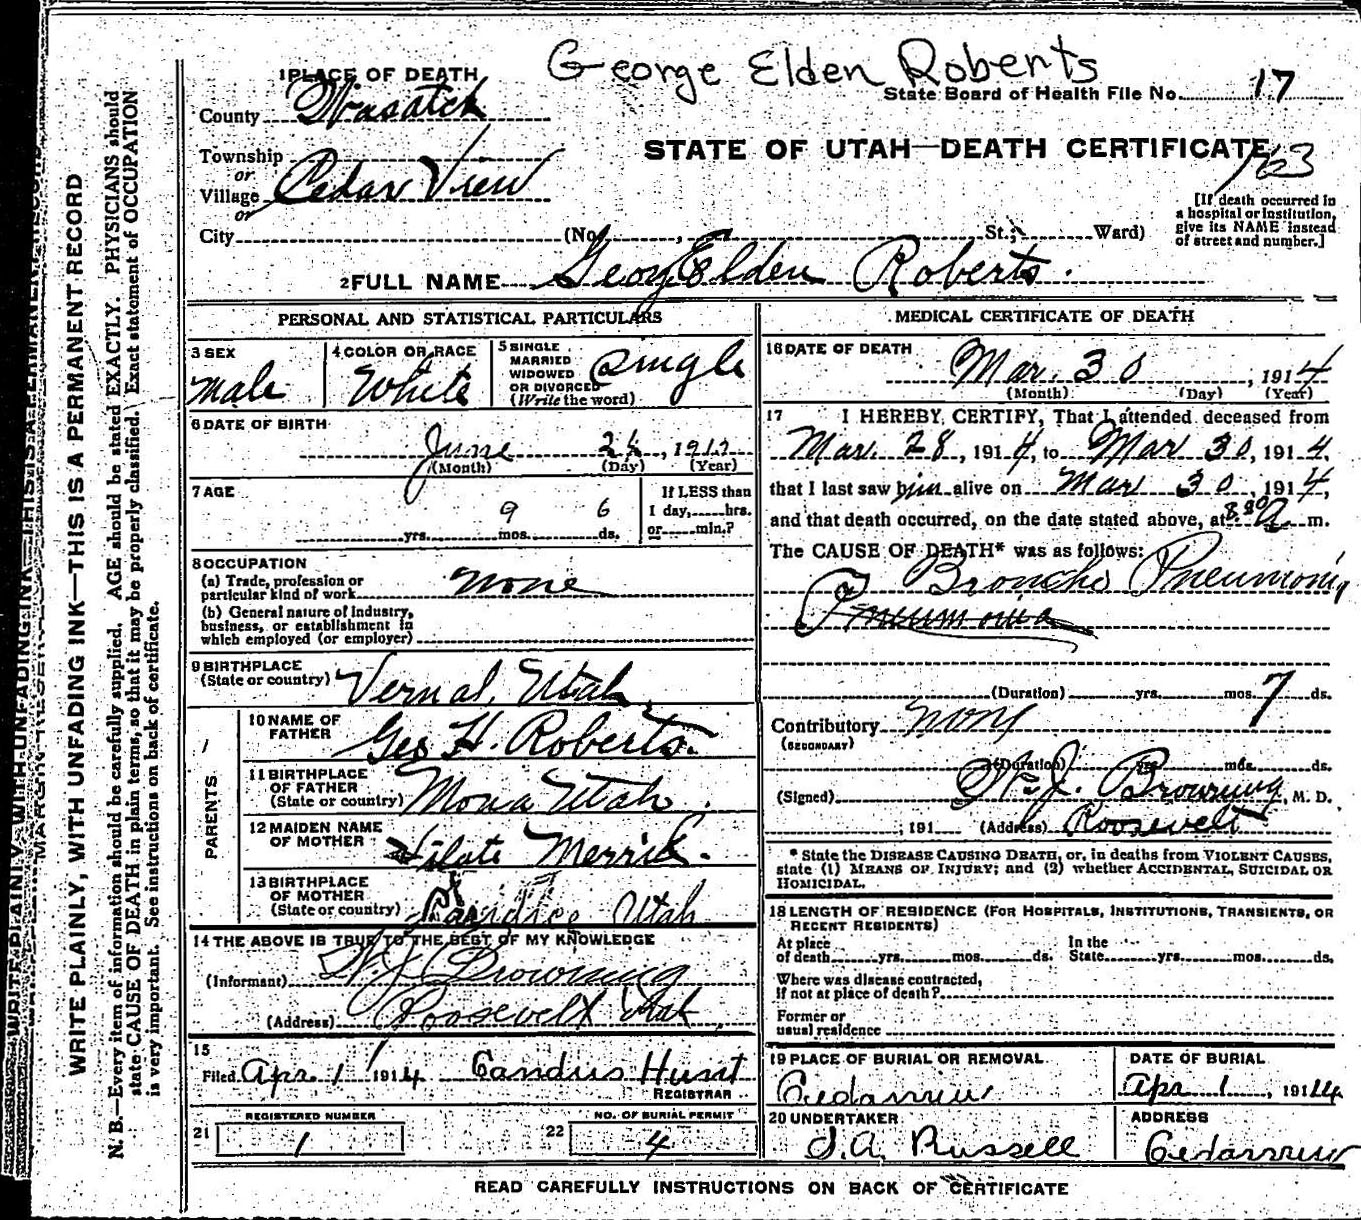 George Elden Roberts
1 PLACE OF DEATH
State Board of Health File No. 17
County Wasatch
STATE OF UTAH—DEATH CERTIFICATE
163
Township
or
Village Cedar View
or
City (No. , St.; Ward)
[If death occurred in a hospital or institution, give its NAME instead of street and number.]
2 FULL NAME Geo Elden Roberts.
PERSONAL AND STATISTICAL PARTICULARS
3 SEX
Male
4 COLOR OR RACE
White
5 SINGLE MARRIED WIDOWED OR DIVORCED (Write the word)
Single
6 DATE OF BIRTH
June , 191
(Month) (Day) (Year)
7 AGE
yrs. 9 mos. 6 ds.
If LESS than 1 day, hrs. or min.?
8 OCCUPATION
(a) Trade, profession or particular kind of work none
(b) General nature of Industry, business, or establishment in which employed (or employer)
9 BIRTHPLACE
(State or country) Vernal, Utah
PARENTS
10 NAME OF FATHER Geo H. Roberts.
11 BIRTHPLACE OF FATHER (State or country) Mona Utah.
12 MAIDEN NAME OF MOTHER Vilate Merrik.
13 BIRTHPLACE OF MOTHER (State or country) Utah
14 THE ABOVE IS TRUE TO THE BEST OF MY KNOWLEDGE
(Informant) W. J. Browning
(Address) Roosevelt Utah
15
Filed Apr. 1 1914 Candius Hunt
REGISTRAR
REGISTERED NUMBER
21 1
NO. OF BURIAL PERMIT
22 4
MEDICAL CERTIFICATE OF DEATH
16 DATE OF DEATH
Mar. 30, 1914
(Month) (Day) (Year)
17 I HEREBY CERTIFY, That I attended deceased from
Mar. 28, 1914, to Mar 30, 1914,
that I last saw him alive on Mar 30, 1914,
and that death occurred, on the date stated above, at 8.30 m.
The CAUSE OF DEATH* was as follows:
Broncho Pneumonia
Pneumonia
(Duration) yrs. mos. 7 ds.
Contributory none
(SECONDARY)
(Duration) yrs. mos. ds.
(Signed) Wm. J. Browning, M. D.
, 191 (Address) Roosevelt
* State the DISEASE CAUSING DEATH, or, in deaths from VIOLENT CAUSES, state (1) MEANS OF INJURY; and (2) whether ACCIDENTAL, SUICIDAL OR HOMICIDAL.
18 LENGTH OF RESIDENCE (FOR HOSPITALS, INSTITUTIONS, TRANSIENTS, OR RECENT RESIDENTS)
At place of death yrs. mos. ds. In the State yrs. mos. ds.
Where was disease contracted, if not at place of death?
Former or usual residence
19 PLACE OF BURIAL OR REMOVAL
Cedarview
DATE OF BURIAL
Apr. 1, 1914
20 UNDERTAKER
J. A. Russell
ADDRESS
Cedarview
READ CAREFULLY INSTRUCTIONS ON BACK OF CERTIFICATE
WRITE PLAINLY, WITH UNFADING INK—THIS IS A PERMANENT RECORD
N. B.—Every item of information should be carefully supplied. AGE should be stated EXACTLY. PHYSICIANS should
state CAUSE OF DEATH in plain terms, so that it may be properly classified. Exact statement of OCCUPATION
is very important. See instructions on back of certificate.